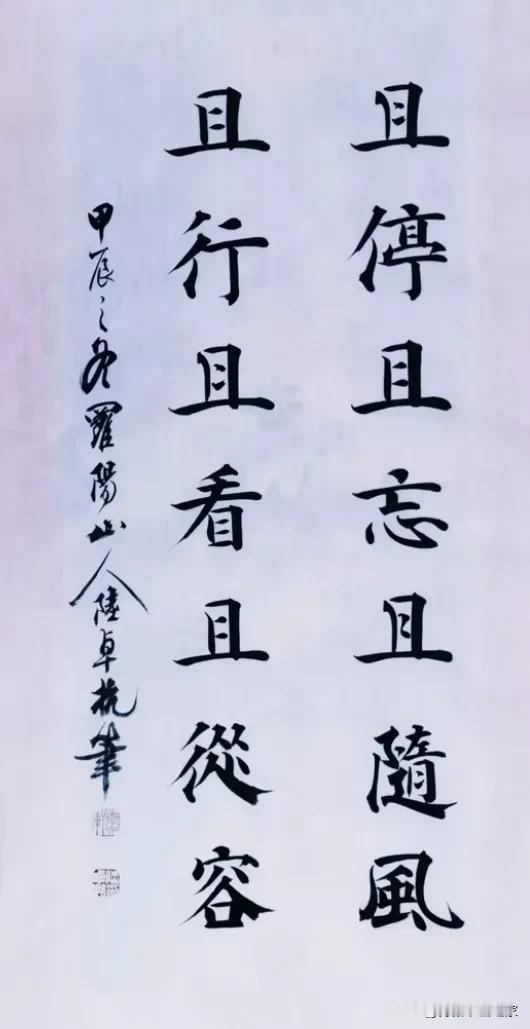 且停且忘且隨風
且行且看且從容
甲辰之冬羅陽山人陸卓杭筆